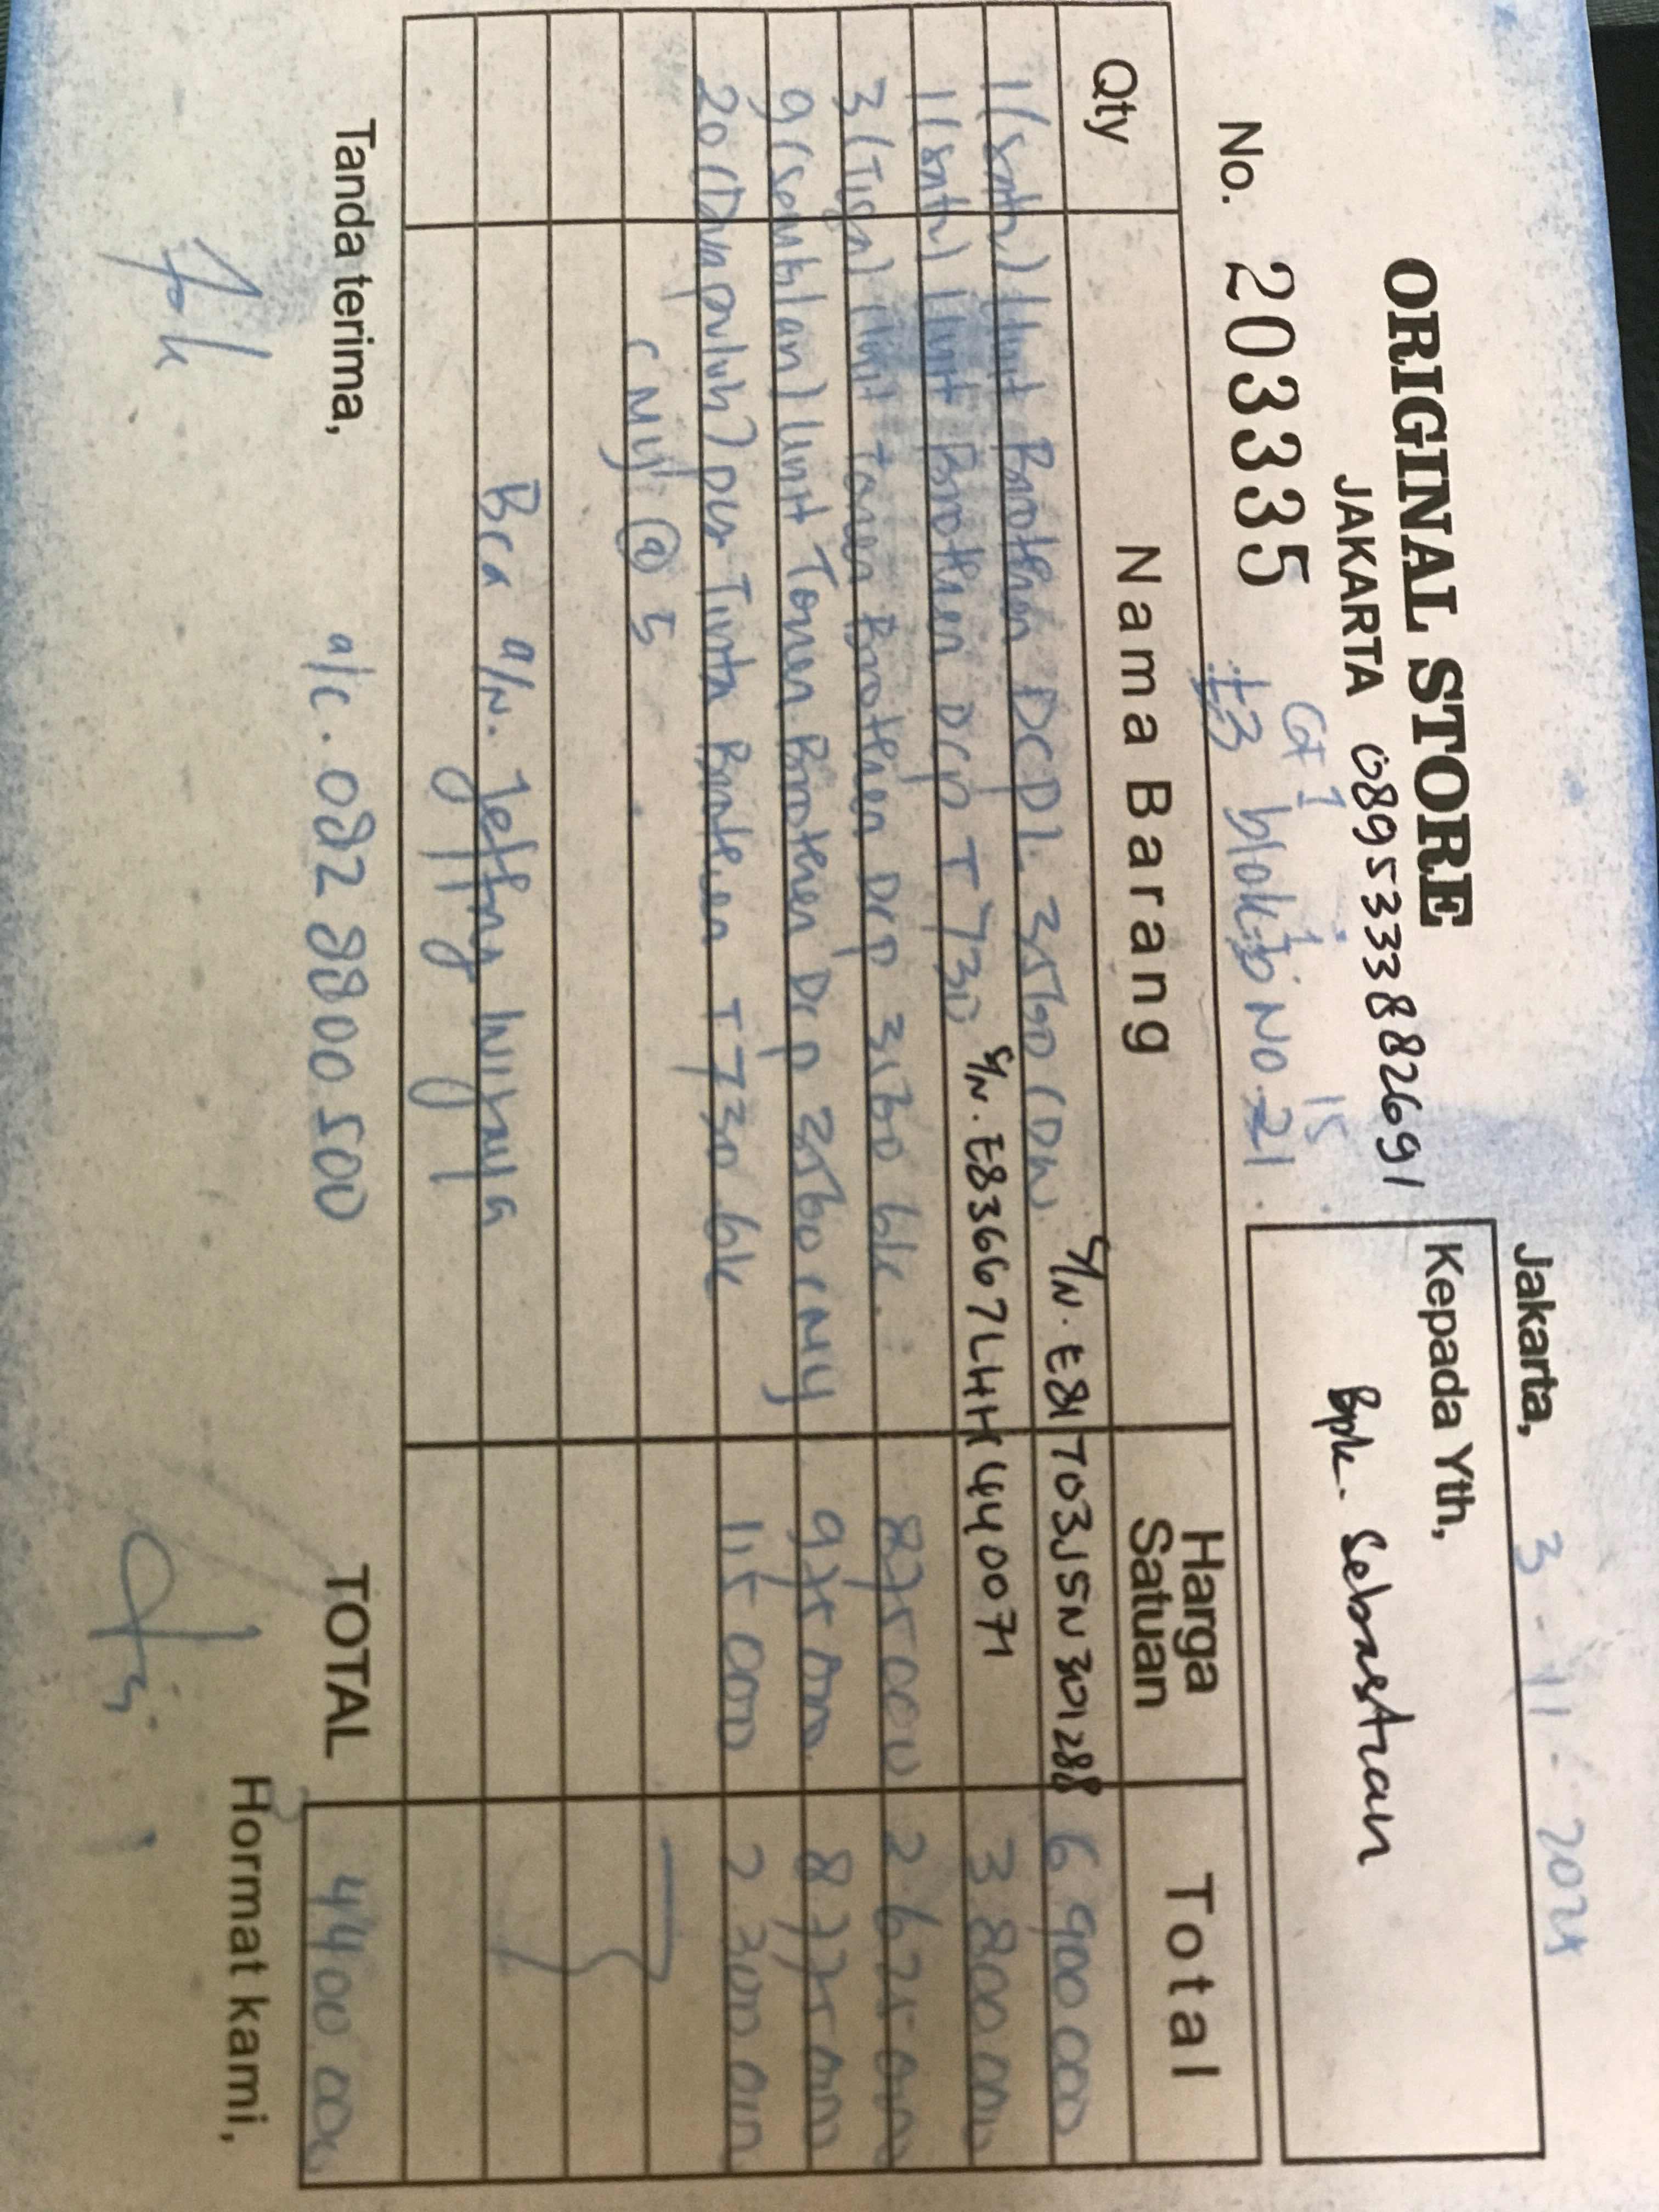 ORIGINAL STORE
JAKARTA 0895333882691
Jakarta, 3 - 11 - 2024
Kepada Yth,
Bpk. Sebastian
No. 203335
blok b No. 21
15
Qty Nama Barang Harga Satuan Total
1 (satu) Unit Brother DCP L 3560 CDW S/N. E81703J5N301288 6 900 000
1 (satu) Unit Brother DCP T 730 S/N. E83667L4H440071 3 800 000
3 (Tiga) Unit Toner Brother DCP blk. 875 000 2 625 000
9 (sembilan) Unit Toner Brother DCP 3560 CMY 975 000 8 775 000
20 (Dua puluh) pcs Tinta Brother T 730 blk 115 000 2 300 000
CMY @ 5
Bca a/n. Jeffry
Tanda terima,
a/c. 082 8800 500
TOTAL 4400 000
Hormat kami,